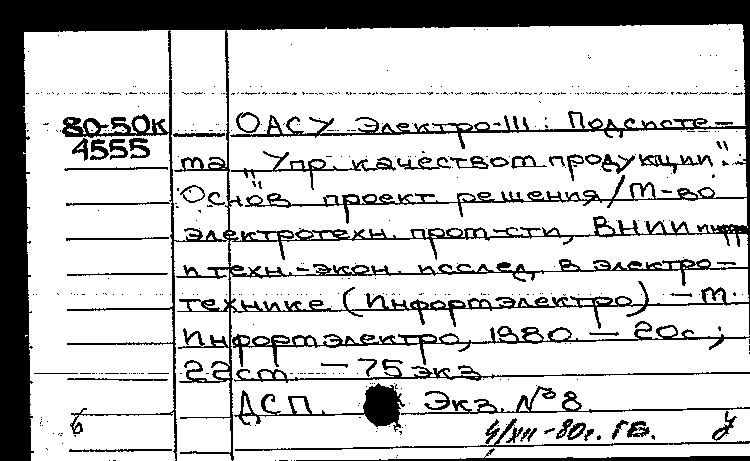 80-50к
4555
ОАСУ Электро-III: Подсисте-
ма „Упр. качеством продукции".
Основ. проект. решения/М-во
электротехн. пром-сти, ВНИИ информ.
и техн.-экон. исслед. в электро-
технике (Информэлектро) – М.
Информэлектро, 1980. – 20с.;
22см. – 75 экз.
ДСП. Экз. № 8.
4/XII-80г. ГБ.